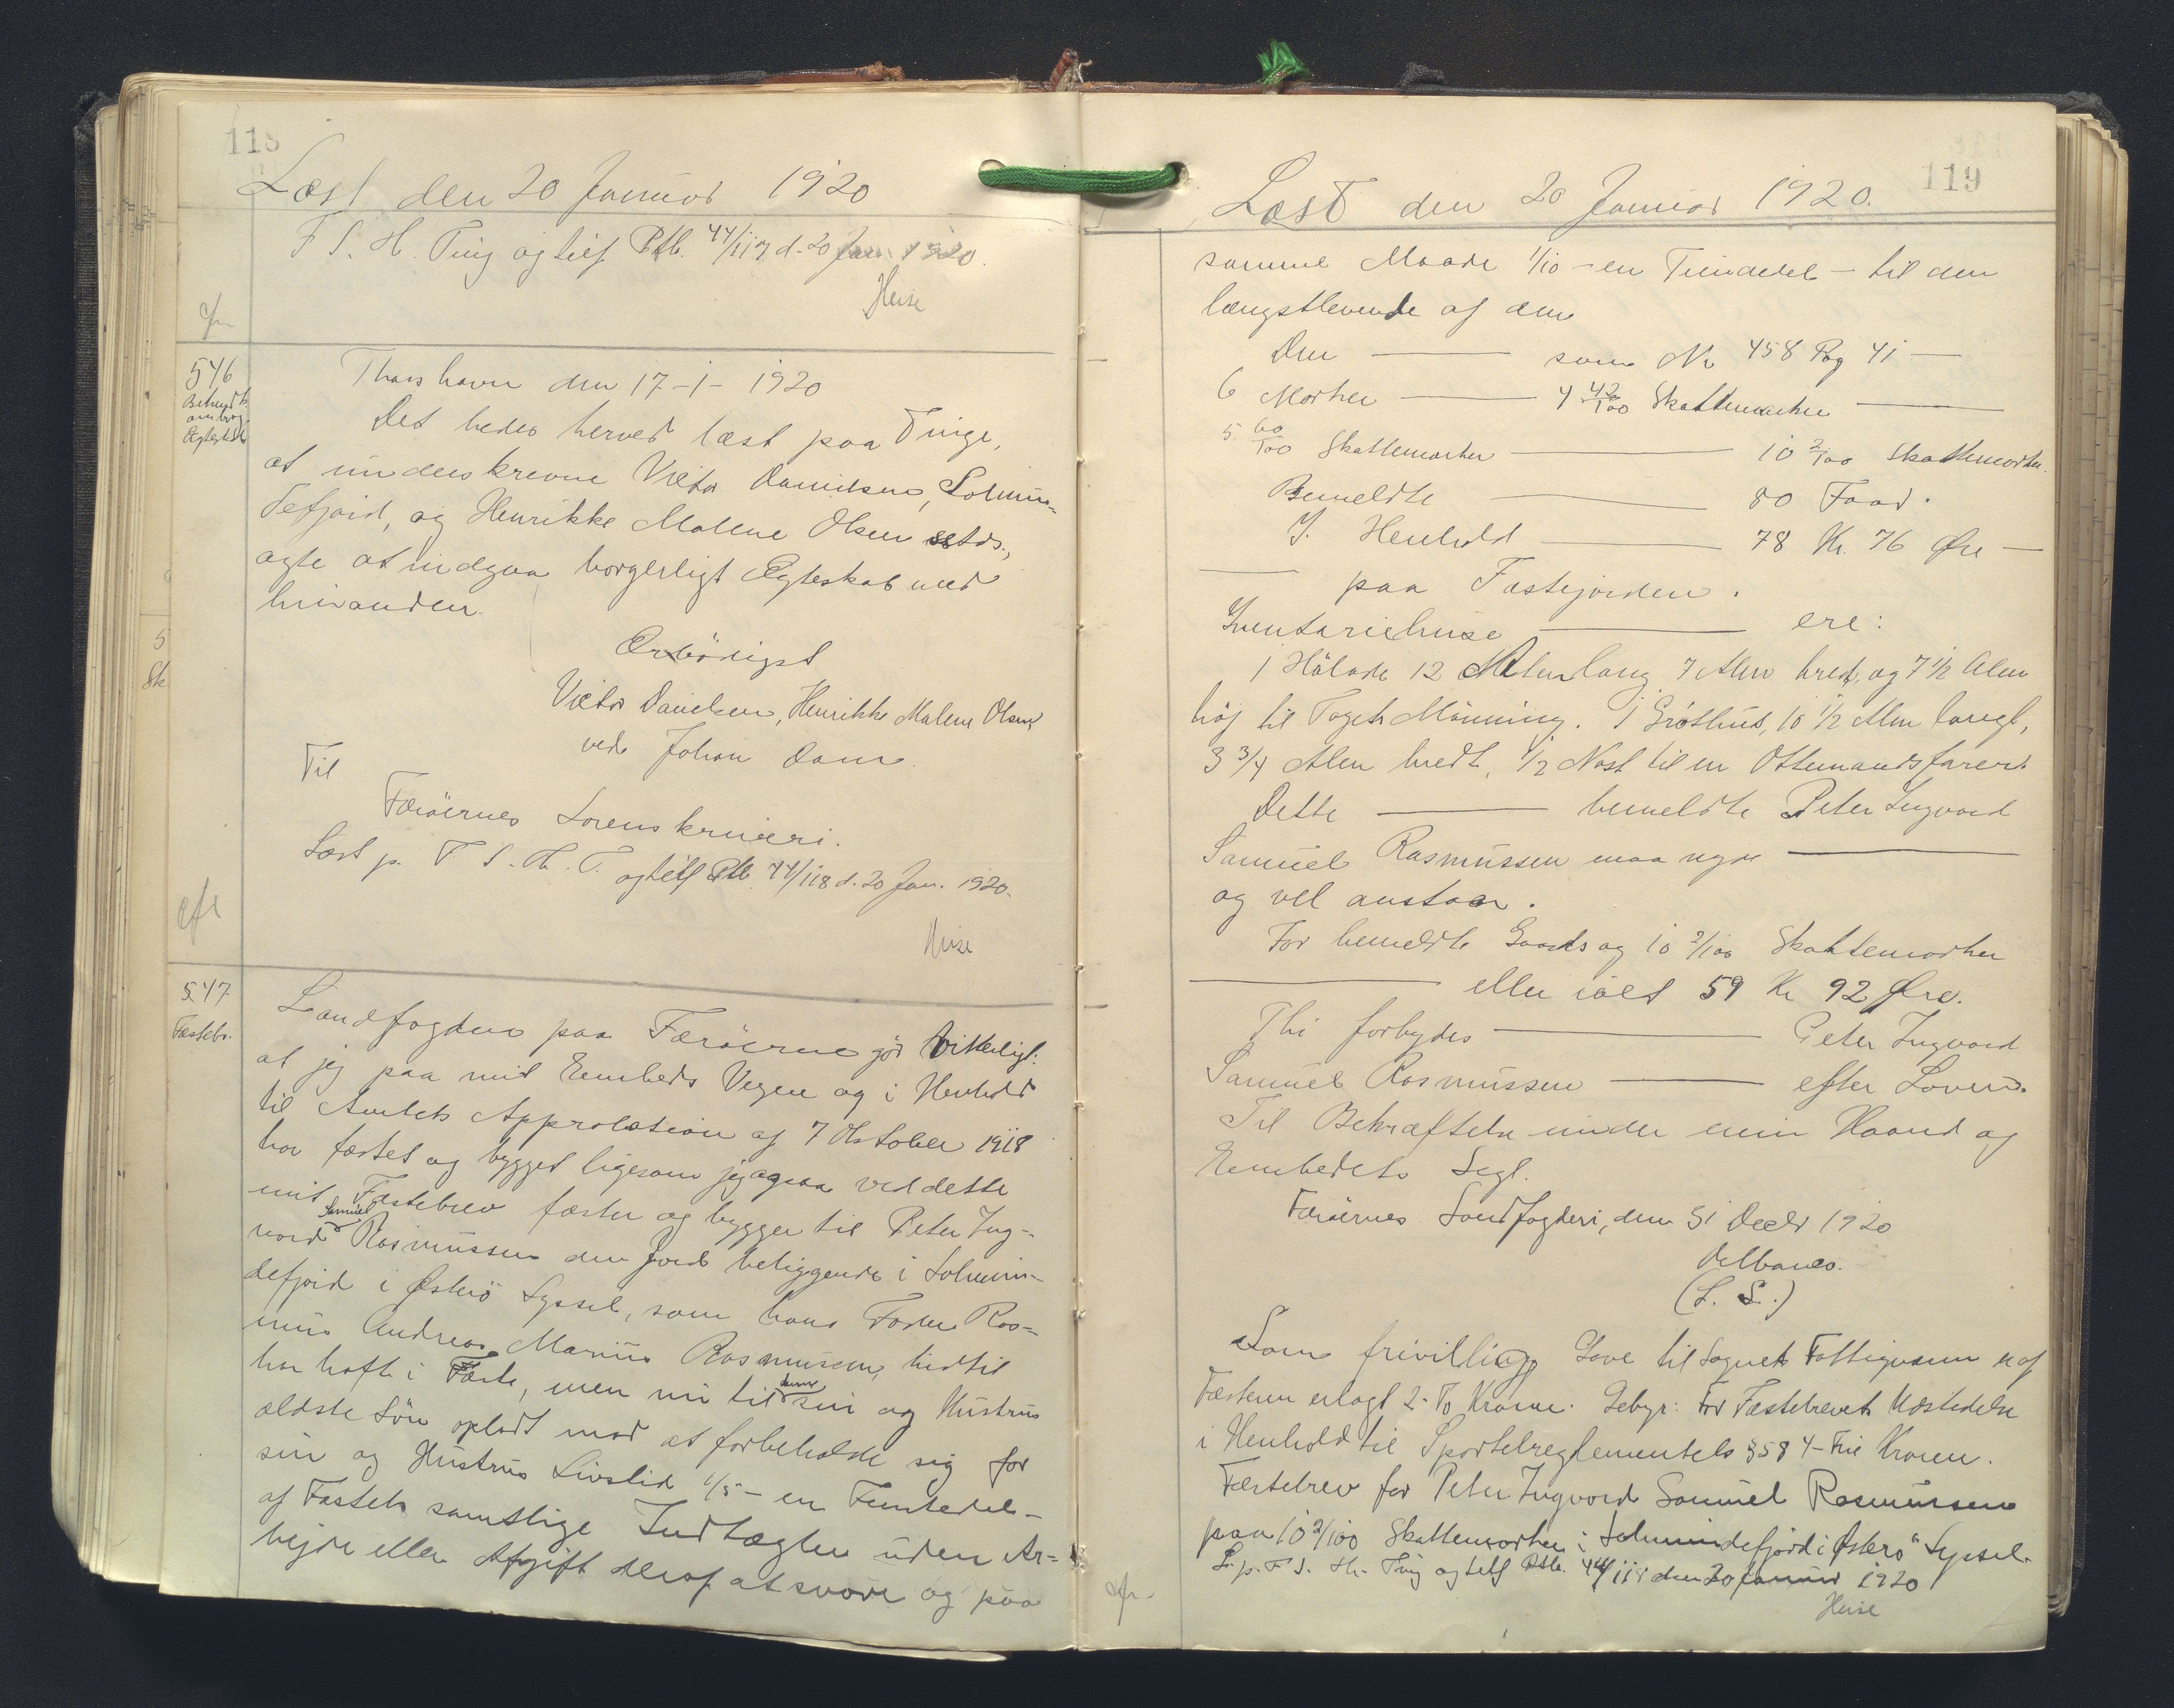 118
Læst den 20 Januar 1920
F. S. H. Ting og tilf Ptb. 44/117 d. 20 Jan. 1920.
Heise
cfr
546
Bekendtg.
om borg.
Ægtesk.
Thorshavn den 17-1-1920
Det bedes herved læst paa Tinge,
at underskrevne Victor Danielsen, Solmun-
defjord, og Henrikke Malene Olsen sstds.,
agte at indgaa borgerligt Ægteskab med
hinanden.
Ærbödigst
Victor Danielsen, Henrikke Malene Olsen
ved Johan Dam.
Til
Færöernes Sorenskriveri.
Læst p. F S. H. T. og tilf Ptb. 44/118 d. 20 Jan. 1920.
Heise
cfr
5
Sk
547
Fæstebr.
Landfogden paa Færöerne gör vitterligt:
at jeg paa mit Embeds Vegne og i Henhold
til Amtets Approbation af 7 Oktober 1918
har fæstet og bygget ligesom jeg ogsaa ved dette
mit Fæstebrev fæster og bygger til Peter Ing-
vard Samuel Rasmussen den Jord beliggende i Solmun-
defjord i Österö Syssel, som hans Fader Ras-
mus Andreas Marius Rasmussen, hidtil
har haft i Fæste, men nu til denne sin og Hustrus
ældste Sön opladt mod at forbeholde sig for
sin og Hustrus Livstid 1/5 - en Femtedel -
af Fæstets samtlige Indtægter uden Ar-
bejde eller Afgift deraf at svare og paa
119
Læst den 20 Januar 1920.
samme Maade 1/10 - en Tiendedel - til den
længstlevende af dem
Den — som Nr 458 Pag 41 —
6 Marker — 4 42/100 Skattemarker —
5 60/100 Skattemarker — 10 2/100 Skattemarker.
Bemeldte — 80 Faar.
I Henhold — 78 Kr. 76 Øre —
— paa Fæstejorden.
Inventariehuse — ere:
1 Hölade 12 Alen lang 7 Alen bred, og 7 1/2 Alen
höj til Tagets Mönning. 1 Gróthus, 10 1/2 Alen langt,
3 3/4 Alen bredt, 1/2 Nöst til en Ottemandsfarer.
Dette — bemeldte Peter Ingvard
Samuel Rasmussen maa nyde —
og vel anstaar.
For bemeldte Gaards og 10 2/100 Skattemarker
— eller ialt 59 Kr 92 Øre.
Thi forbydes — Peter Ingvard
Samuel Rasmussen — efter Loven.
Til Bekræftelse under min Haand og
Embedets Segl.
Færöernes Landfogderi, den 31 Decbr 1920
Delbanco.
(L. S.)
Som frivillig Gave til Sognets Fattigvæsen er af
Fæsteren erlagt 2- To Kroner. Gebyr: For Fæstebrevets Udstedelse
i Henhold til Sportelreglementets § 58 4- Fire Kroner.
Fæstebrev for Peter Ingvard Samuel Rasmussen
paa 10 2/100 Skattemarker i Solmundefjord i Österö Syssel.
L. p. F S. H. Ting og tilf Ptb. 44/118 den 20 Januar 1920
Heise
cfr.